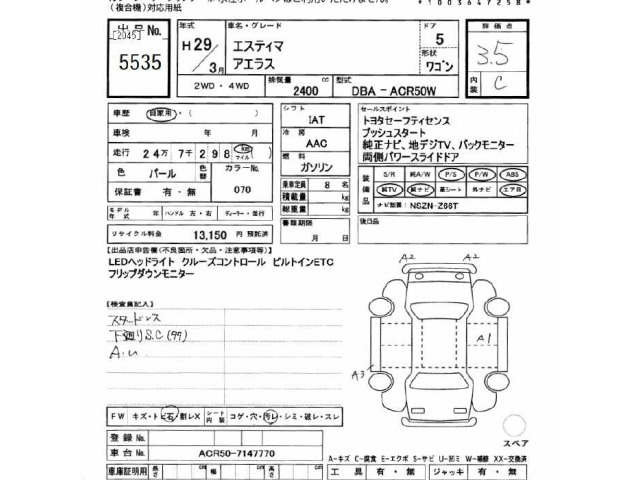 (複合機)対応用紙
*10036472 58*
出品No. 年式 車名・グレード ドア 評価点
[2045] H29/3月 エスティマ 5 3.5
5535 アエラス 形状 ワゴン 内装 C
2WD・4WD 排気量 2400 cc 型式 DBA-ACR50W
車歴 自家用・( ) シフト IAT セールスポイント
車検 年 月 冷房 AAC トヨタセーフティセンス
プッシュスタート
走行 24万7千298 km マイル 燃料 ガソリン 純正ナビ、地デジTV、バックモニター
両側パワースライドドア
色 パール 色替 カラーNo. 070 乗車定員 8 名 装備品 S/R 純A/W P/S P/W ABS
保証書 有・無 積載量 kg 純TV 純ナビ 革シート 外ナビ エアB
総重量 kg ナビ型番: NSZN-Z66T
モデル年式 年 ハンドル 左・右 ディーラー・並行 書類期限 月 日 後日品
リサイクル料金 13,150 円 預託済
[出品店申告欄(不良箇所・欠品・注意事項等)]
LEDヘッドライト クルーズコントロール ビルトインETC
フリップダウンモニター
[検査員記入]
スタッドレス
下廻りS.C(サケ)
A.U
A2 A2
A1
A3
FW キズ・トビ石・割レX シート内装 コゲ・穴・汚レ・シミ・破レ・スレ
スペア
登録No.
車台No. ACR50-7147770 A-キズ C-腐食 E-エクボ S-サビ U-凹ミ W-補修 XX-交換済
車庫証明用 長さ cm 幅 cm 高さ cm 工具 有・無 ジャッキ 有・無